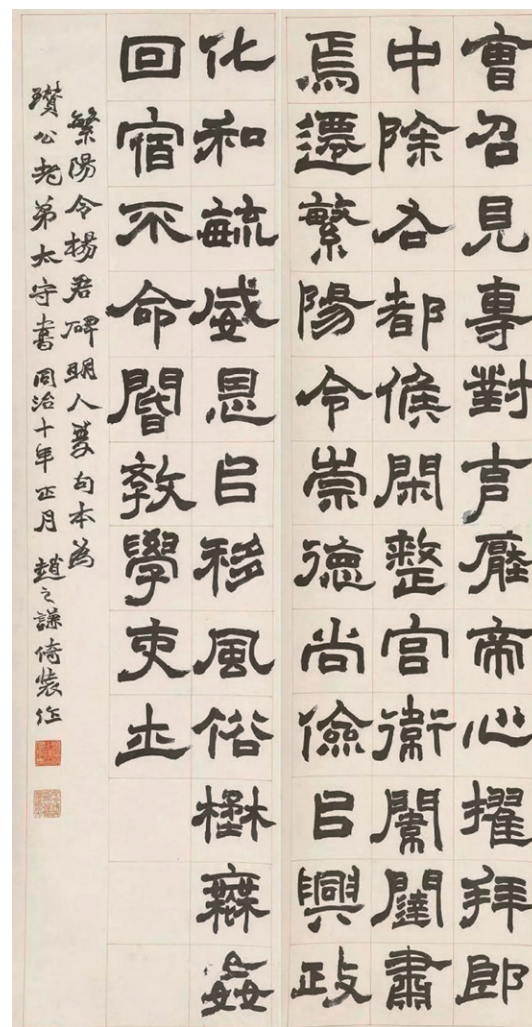 會召見專對言應帝心擢拜郎
中除右都候閑整宮衛闈闥肅
焉遷繁陽令崇德尚儉㠯興政
化和毓威恩㠯移風俗無姦
回宿不命閽敦學吏
繁陽令楊君碑明人雙句本為
瓚公老弟太守書同治十年正月 趙之謙倚裝作